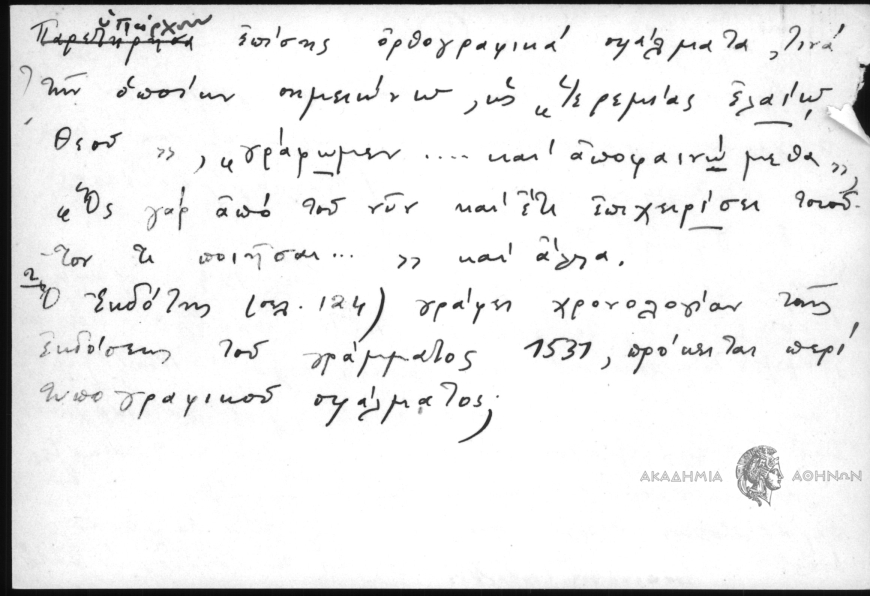 ὑπάρχουν
Παρετήρησα ἐπίσης ὀρθογραφικά σφάλματα, τινά
τῶν ὁποίων σημειώνω, ὡς «Ἱερεμίας ἐλαίῳ
Θεοῦ», «γράφωμεν .... καί ἀποφαινώμεθα»,
«Ὅς γάρ ἀπό τοῦ νῦν καί ἔτι ἐπιχειρίσει τοιοῦ-
τον τι ποιῆσαι... » καί ἄλλα.
Ὁ Ἐκδότης (σελ. 124) γράφει χρονολογίαν τῆς
ἐκδόσεως τοῦ γράμματος 1531, πρόκειται περί
τυπογραφικοῦ σφάλματος;
ΑΚΑΔΗΜΙΑ ΑΘΗΝΩΝ